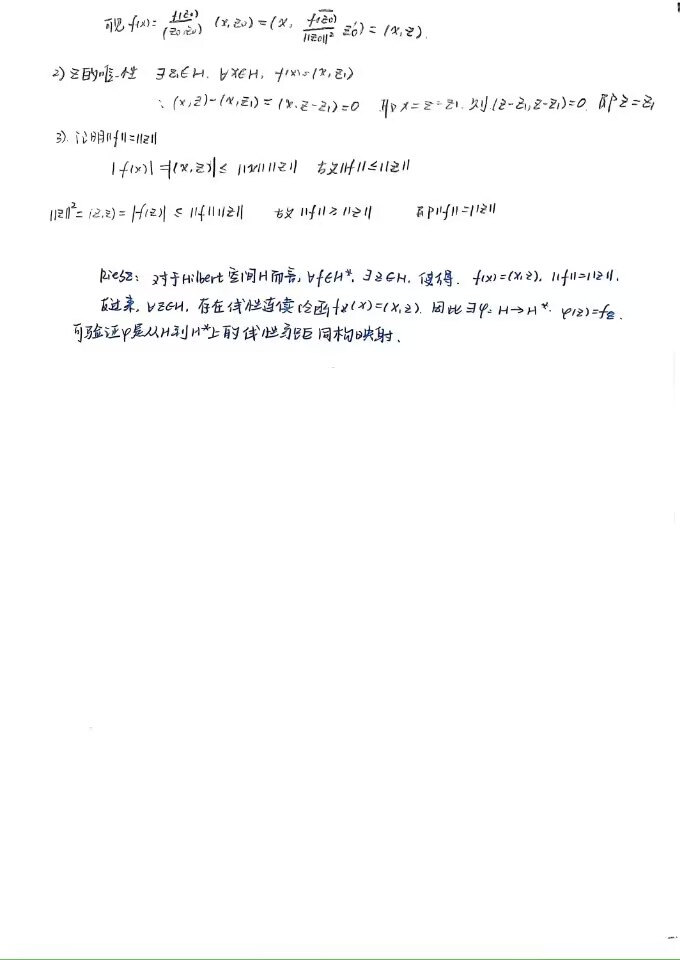 可见 f(x) = f(z₀)/(z₀,z₀) (x,z₀) = (x, \overline{f(z₀)}/||z₀||² z₀) = (x,z).
2) z的唯一性 ∃z₁∈H, ∀x∈H, f(x)=(x,z₁)
∴ (x,z)-(x,z₁)=(x,z-z₁)=0 取x=z-z₁, 则(z-z₁,z-z₁)=0, 即z=z₁
3). 证明||f||=||z||
|f(x)|=|(x,z)|≤ ||x|| ||z|| 故||f||≤||z||
||z||²=(z,z)=|f(z)| ≤ ||f|| ||z|| 故||f||≥||z|| 即||f||=||z||
Riesz: 对于Hilbert空间H而言, ∀f∈H*, ∃z∈H, 使得. f(x)=(x,z), ||f||=||z||.
反过来, ∀z∈H, 存在线性连续泛函fz(x)=(x,z). 因此∃φ: H→H*. φ(z)=fz.
可验证φ是从H到H*上的线性等距同构映射.